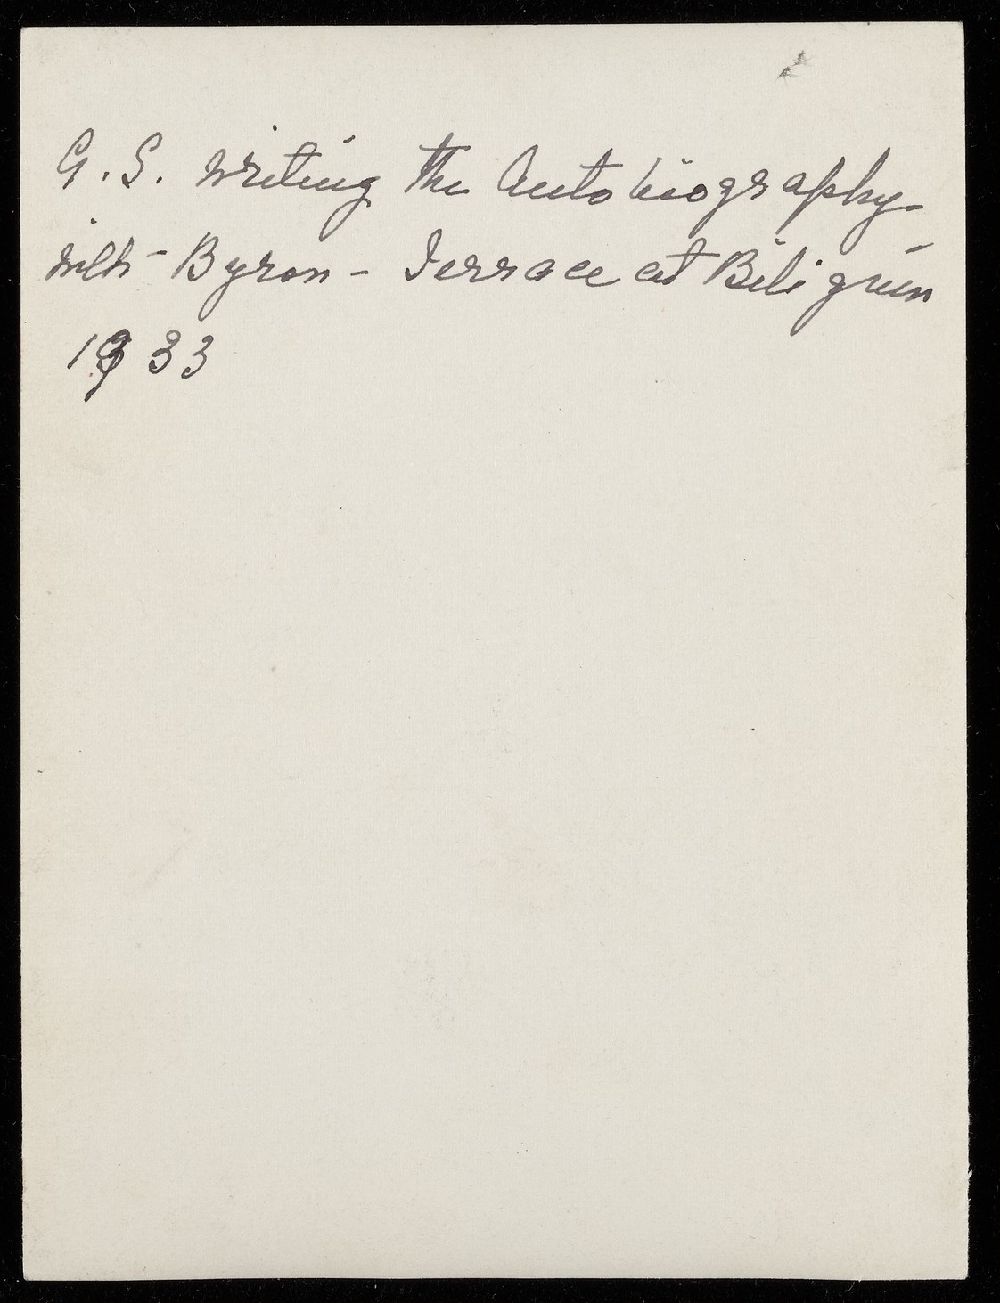 G. S. writing the Autobiography -
with Byron - Terrace at Biliguin
1933